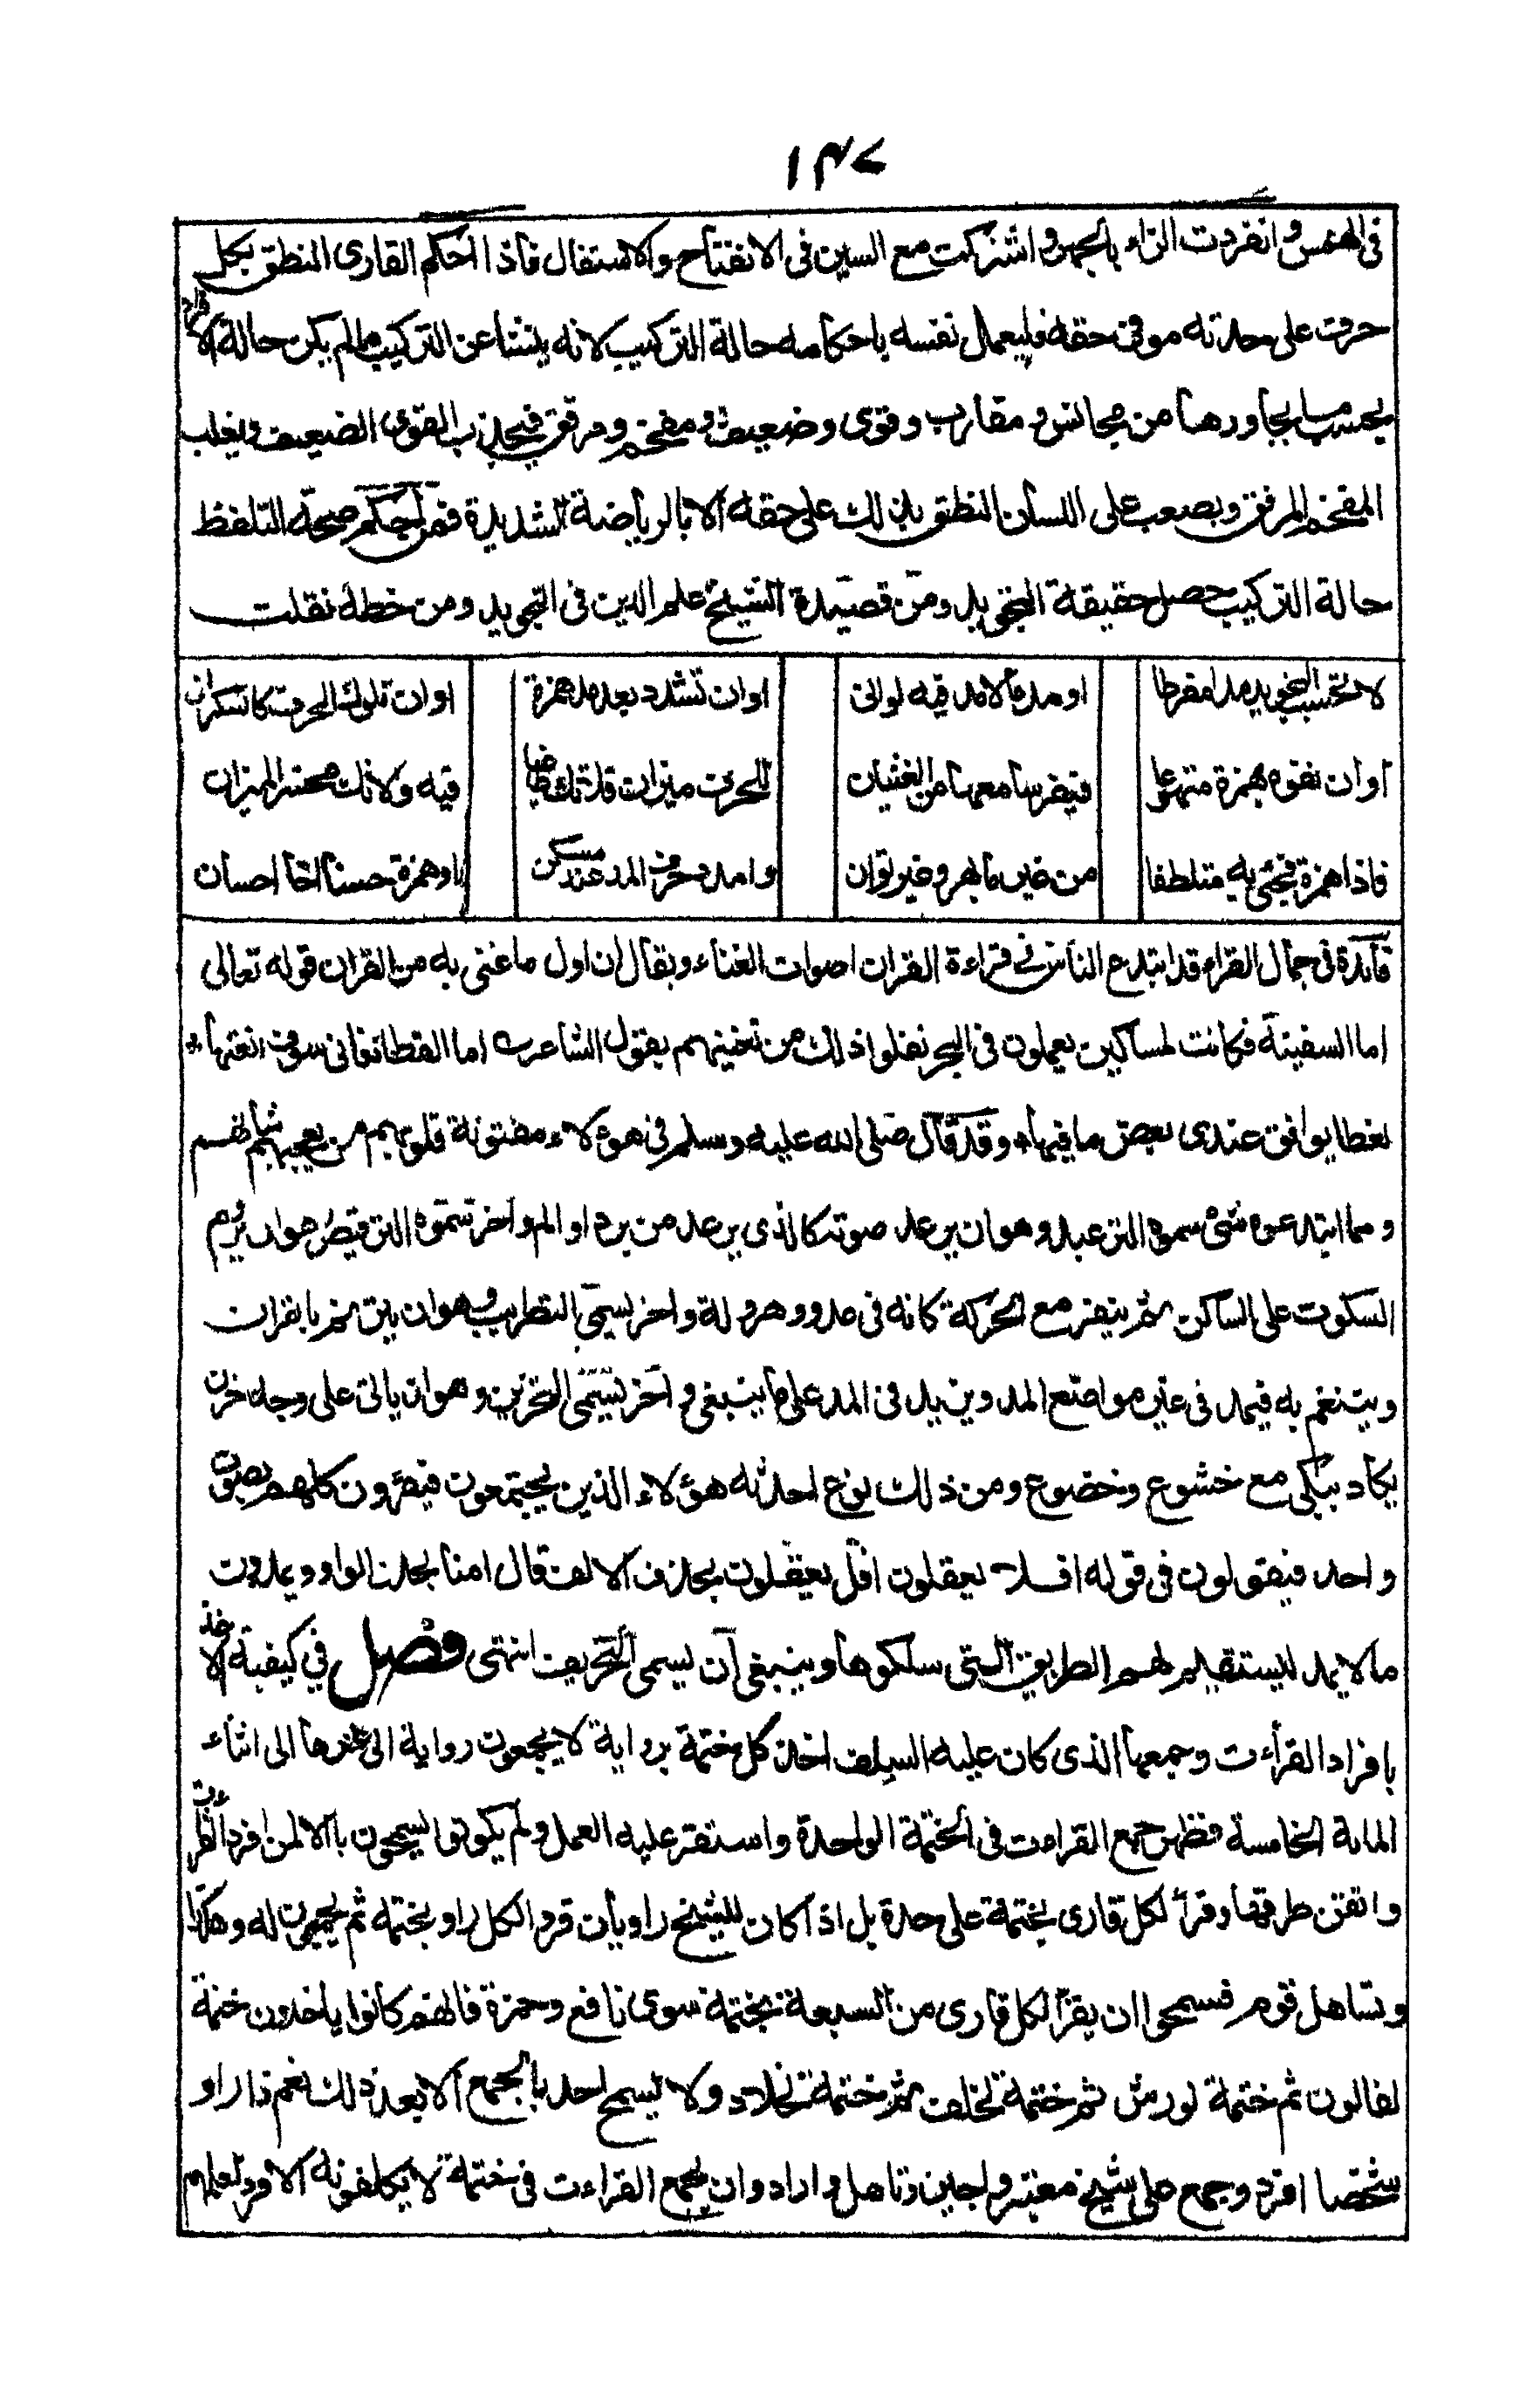 ١٣٧
في الهمس وانفردت الزاء بالجهر واشتركت مع السين في الانفتاح والاستفال فاذا احكم القارى النطق بكل
حرف على حدته موفى حقه فليعمل نفسه باحكامه حالة التركيب لانه ينشا عن التركيب مالم يكن حالة الافراد
بحسب ما يجاورها من مجانس ومقارب وقوى وضعيف ومفخم ومرقق فيجذب القوى الضعيف ويغلب
المفخم المرقق ويصعب على اللسان النطق بذلك على حقه الا بالرياضة الشديدة فمن احكم صحة التلفظ
حالة التركيب حصل حقيقة التجويد ومن قصيدة الشيخ علم الدين في التجويد ومن خطه نقلت
لا تحسب التجويد مدا مفرطا او مد ما لا مد فيه لوانى اوان تشدد بعد مد همزة اوان تلوك الحرف كالسكران
اوان تفوه بهمزة متهوعا فيفر سامعها من الغثيان للحرف ميزان فلا تك طاغيا فيه ولا تك مخسر الميزان
فاذا همزت فجئ به متلطفا من غير ما بهر وغير توان وامدد حروف المد عند مسكن او همزة حسنا اخا احسان
فائدة في جمال القراء قد ابتدع الناس في قراءة القران اصوات الغناء ويقال ان اول ما غنى به من القران قوله تعالى
اما السفينة فكانت لمساكين يعملون في البحر نقلوا ذلك من تغنيهم بقول الشاعر اما القطاة فانى سوف انعتها *
نعتا يوافق عندى بعض ما فيها * وقد قال صلى الله عليه وسلم في هؤلاء مفتونة قلوبهم من يعجبهم شانهم
ومما ابتدعوه شئ سموه الترعيد وهو ان يرعد صوته كالذى يرعد من برد او الم واخر سموه الترقيص وهو ان يروم
السكوت على الساكن ثم ينفر مع الحركة كانه في عدو وهرولة واخر يسمى التطريب وهو ان يترنم بالقران
ويتنغم به فيمد في غير مواضع المد ويزيد في المد على ما ينبغى واخر يسمى التحزين وهو ان ياتى على وجه حزن
يكاد يبكى مع خشوع وخضوع ومن ذلك نوع احدثه هؤلاء الذين يجتمعون فيقرؤن كلهم بصوت
واحد فيقولون في قوله افلا تعقلون افل تعقلون بحذف الالف قال امنا بحذف الواو ويمدون
مالا يمد ليستقيم لهم الطريق التى سلكوها وينبغى ان يسمى التحريف انتهى فصل في كيفية الاخذ
بافراد القراءت وجمعها الذى كان عليه السلف اخذ كل ختمة برواية لا يجمعون رواية الى غيرها الى اثناء
المائة الخامسة فظهر جمع القراءت في الختمة الواحدة واستقر عليه العمل ولم يكونوا يسمحون به الا لمن افرد القراءت
واتقن طرقها وقرأ لكل قارى بختمة على حدة بل اذا كان للشيخ راويان قرء لكل راو بختمة ثم يجمعون له وهكذا
وتساهل قوم فسمحوا ان يقرأ لكل قارى من السبعة بختمة سوى نافع وحمزة فانهم كانوا ياخذون ختمة
لقالون ثم ختمة لورش ثم ختمة لخلف ثم ختمة لخلاد ولا يسمح احد بالجمع الا بعد ذلك نعم اذا راو
شخصا افرد وجمع على شيخ معتبر واجيز وتاهل واراد وان يجمع القراءت في ختمة لا يكلفونه الافراد لعلمهم